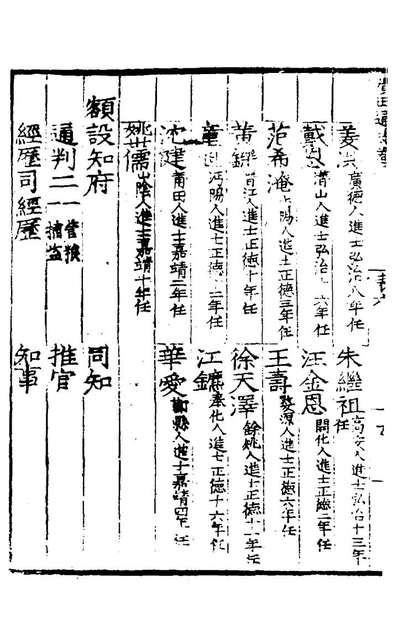 姜洪廣德人進士弘治八年任 朱繼祖高安人進士弘治十三年任
戴 清山人進士弘治 六年任 汪金恩開化人進士正德二年任
范希淹 陽人進士正德三年任 王壽婺源人進士正德六年任
黃鏘 江人進士正德十年任 徐天澤餘姚人進士正德十 年任
童 沔陽人進士正德十二年任 江鑛奉化人進士正德十六年任
沈建莆田人進士嘉靖二年任 華愛 縣人進士嘉靖四年任
姚世儒山陰人進士嘉靖十年任
額設知府 同知
通判二一管糧一捕盜 推官
經歷司經歷 知事